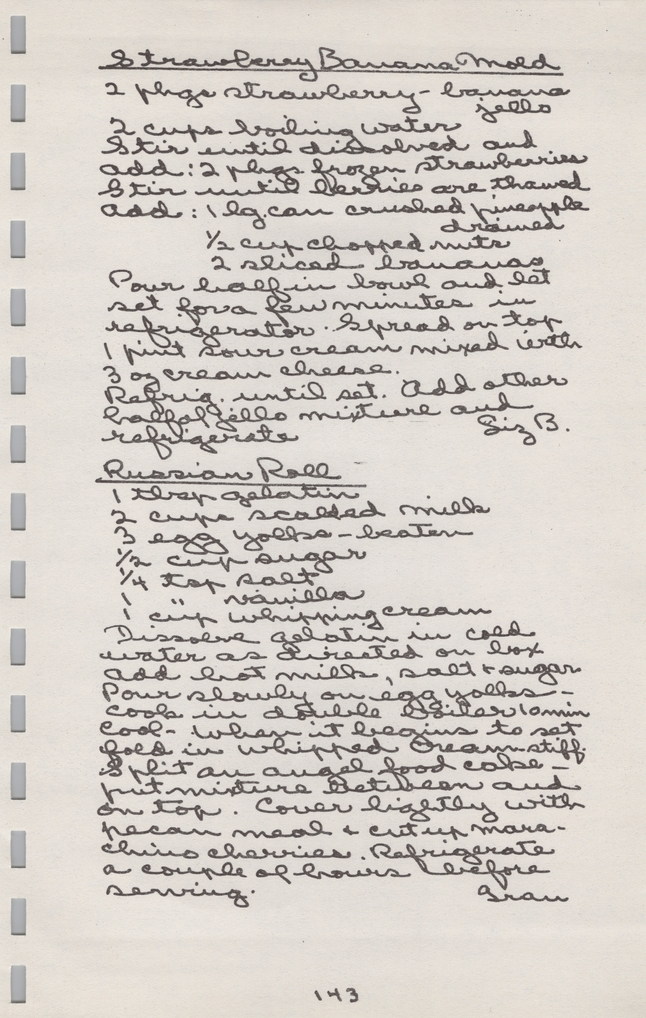 Strawberry Banana Mold
2 phgs strawberry - banana
jello
2 cups boiling water
Stir until dissolved and
add: 2 phgs frozen strawberries
Stir until berries are thawed
add: 1 lg. can crushed pineapple
drained
1/2 cup chopped nuts
2 sliced bananas
Pour half in bowl and let
set for a few minutes in
refrigerator. Spread on top
1 pint sour cream mixed with
3 oz cream cheese.
Refrig. until set. Add other
half of jello mixture and
refrigerate Siz B.
Russian Roll
1 tbsp gelatin
2 cups scalded milk
3 egg yolks - beaten
1/2 cup sugar
1/4 tsp salt
1 " vanilla
1 cup whipping cream
Dissolve gelatin in cold
water as directed on box
add hot milk, salt + sugar
Pour slowly on egg yolks -
cook in double boiler 10 min
Cool - when it begins to set
fold in whipped cream - stiff.
Split an angel food cake -
put mixture between and
on top. Cover lightly with
pecan meal + cut up mara-
chino cherries. Refrigerate
a couple of hours before
serving. Gran
143